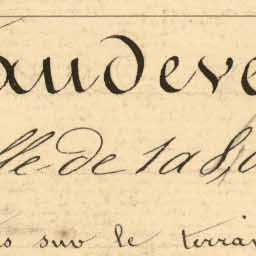 audeve
lle de 1 à 8,0
s sur le terrai